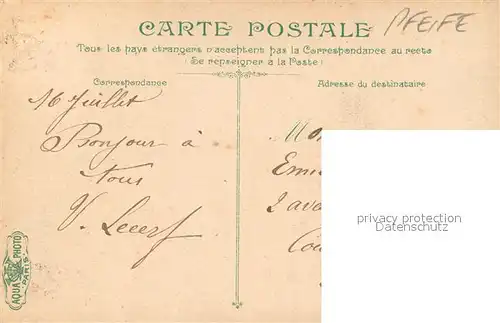 CARTE POSTALE
PFEIFE
Tous les pays étrangers n'acceptent pas la Correspondance au recto
(Se renseigner à la Poste)
Correspondance
Adresse du destinataire
16 Juillet
Bonjour à
tous
V. Lecerf
2 ave
privacy protection
Datenschutz
AQUA PHOTO
PARIS